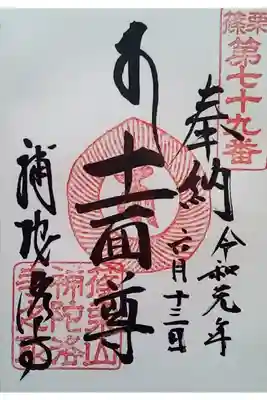 篠栗
第七十九番
奉納
令和元年
六月十三日
十一面尊
補陀洛寺